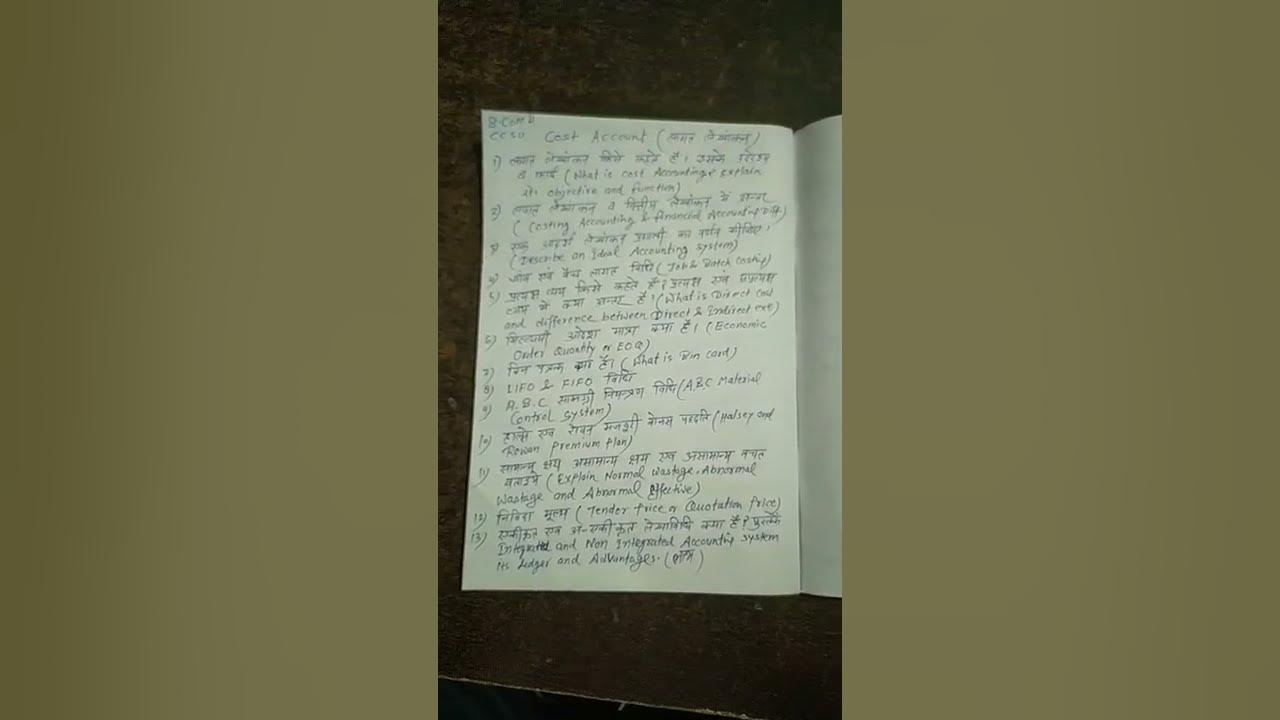 B.Com II
CCSU Cost Account (लागत लेखांकन)
1) लागत लेखांकन किसे कहते है। इसके उद्देश्य
व कार्य (What is cost Accounting & Explain
its objective and function)
2) लागत लेखांकन व वित्तीय लेखांकन में अन्तर
( Costing Accounting & financial Accounting Diff)
3) एक आदर्श लेखांकन प्रणाली का वर्णन कीजिए।
(Describe an Ideal Accounting system)
4) जॉब एवं बैच लागत विधि ( Job & Batch Costing)
5) प्रत्यक्ष व्यय किसे कहते है? प्रत्यक्ष एवं अप्रत्यक्ष
व्यय में क्या अन्तर है। (What is Direct Cost
and difference between Direct & Indirect exe)
6) मितव्ययी आदेश मात्रा क्या है। (Economic
Order Quantity or EOQ)
7) बिन पत्रक क्या है। ( What is Bin card)
8) LIFO & FIFO विधि
9) A.B.C सामग्री नियन्त्रण विधि (A.B.C Material
Control System)
10) हाल्से एवं रोवन मजदूरी बोनस पद्धति (Halsey and
Rowan Premium Plan)
11) सामान्य क्षय असामान्य क्षय एवं असामान्य बचत
बताइये ( Explain Normal Wastage, Abnormal
Wastage and Abnormal Effective)
12) निविदा मूल्य ( Tender Price or Quotation Price)
13) एकीकृत एवं अ-एकीकृत लेखाविधि क्या है?
Integrated and Non Integrated Accounting system
its Ledger and Advantages. (लाभ)